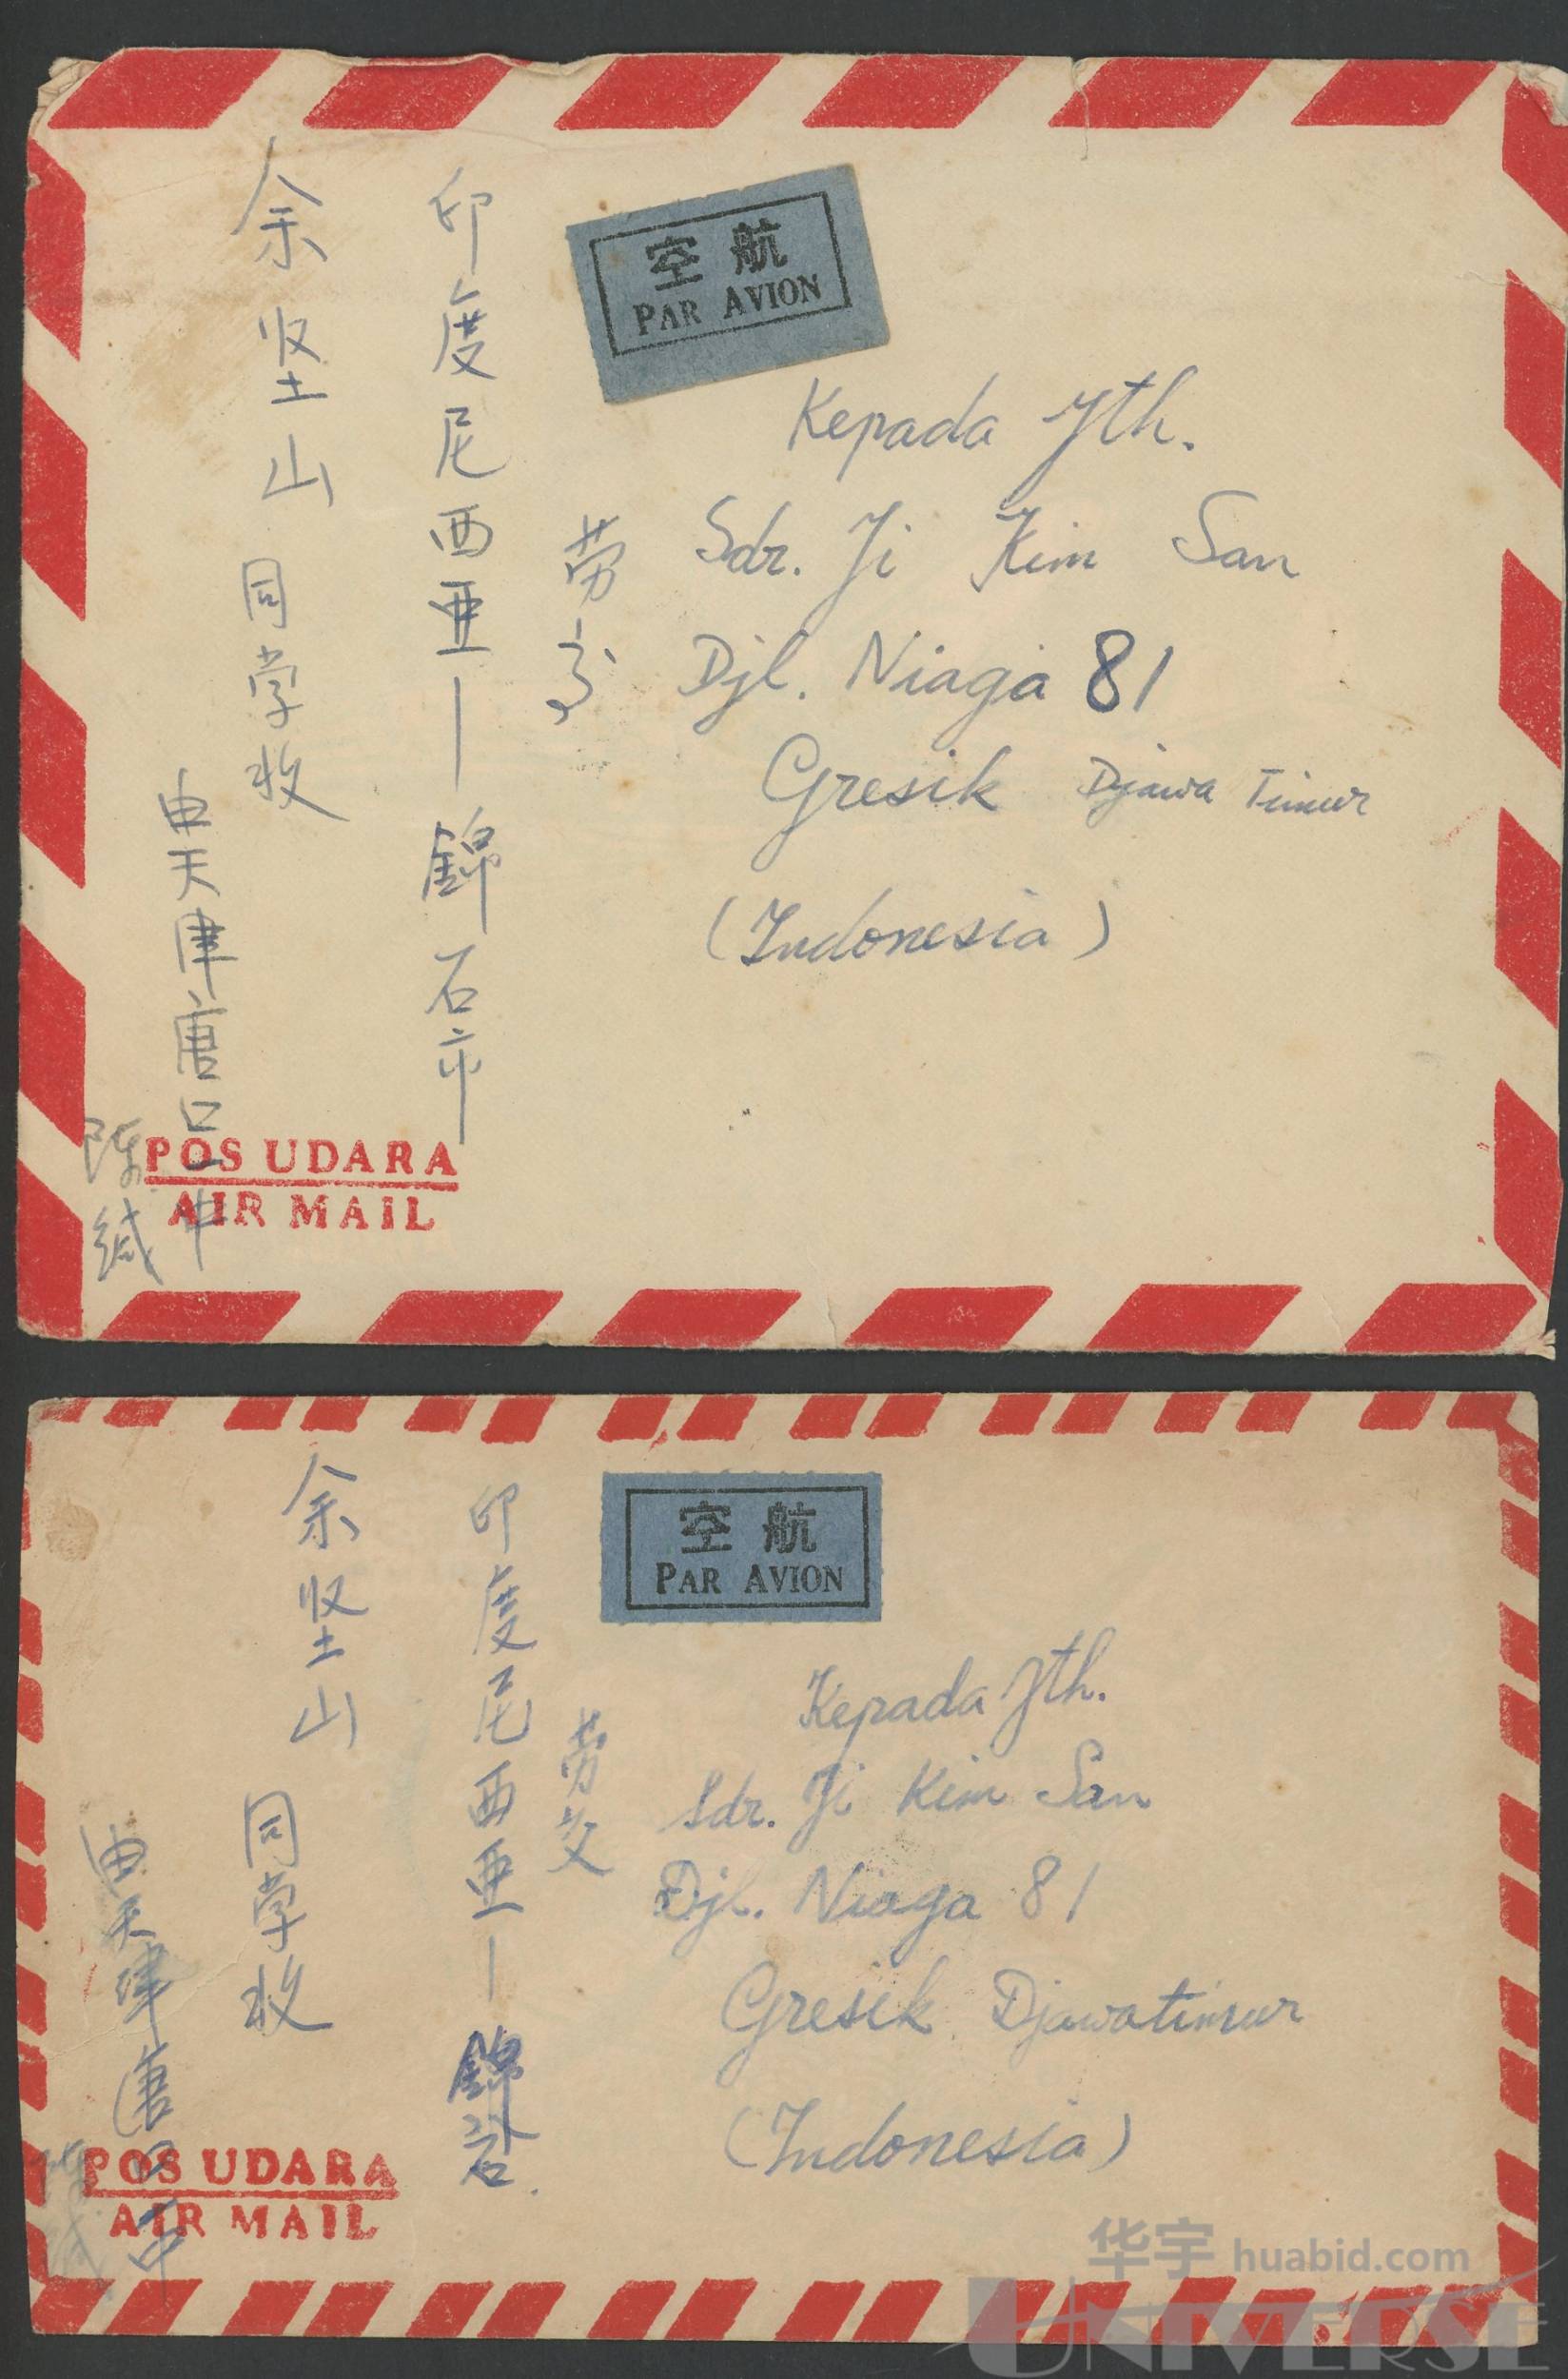 空航
PAR AVION
Kepada Yth.
Sdr. Ji Kim San
Djl. Niaga 81
Gresik Djawa Timur
(Indonesia)
劳
印度尼西亚—錦石市
余坚山 同学收
由天津唐口一中
陈缄
POS UDARA
AIR MAIL
空航
PAR AVION
Kepada Yth.
Sdr. Ji Kim San
Djl. Niaga 81
Gresik Djawatimur
(Indonesia)
劳交
印度尼西亚—錦石
余坚山 同学收
由天津唐口一中
POS UDARA
AIR MAIL
华宇 huabid.com
UNIVERSE